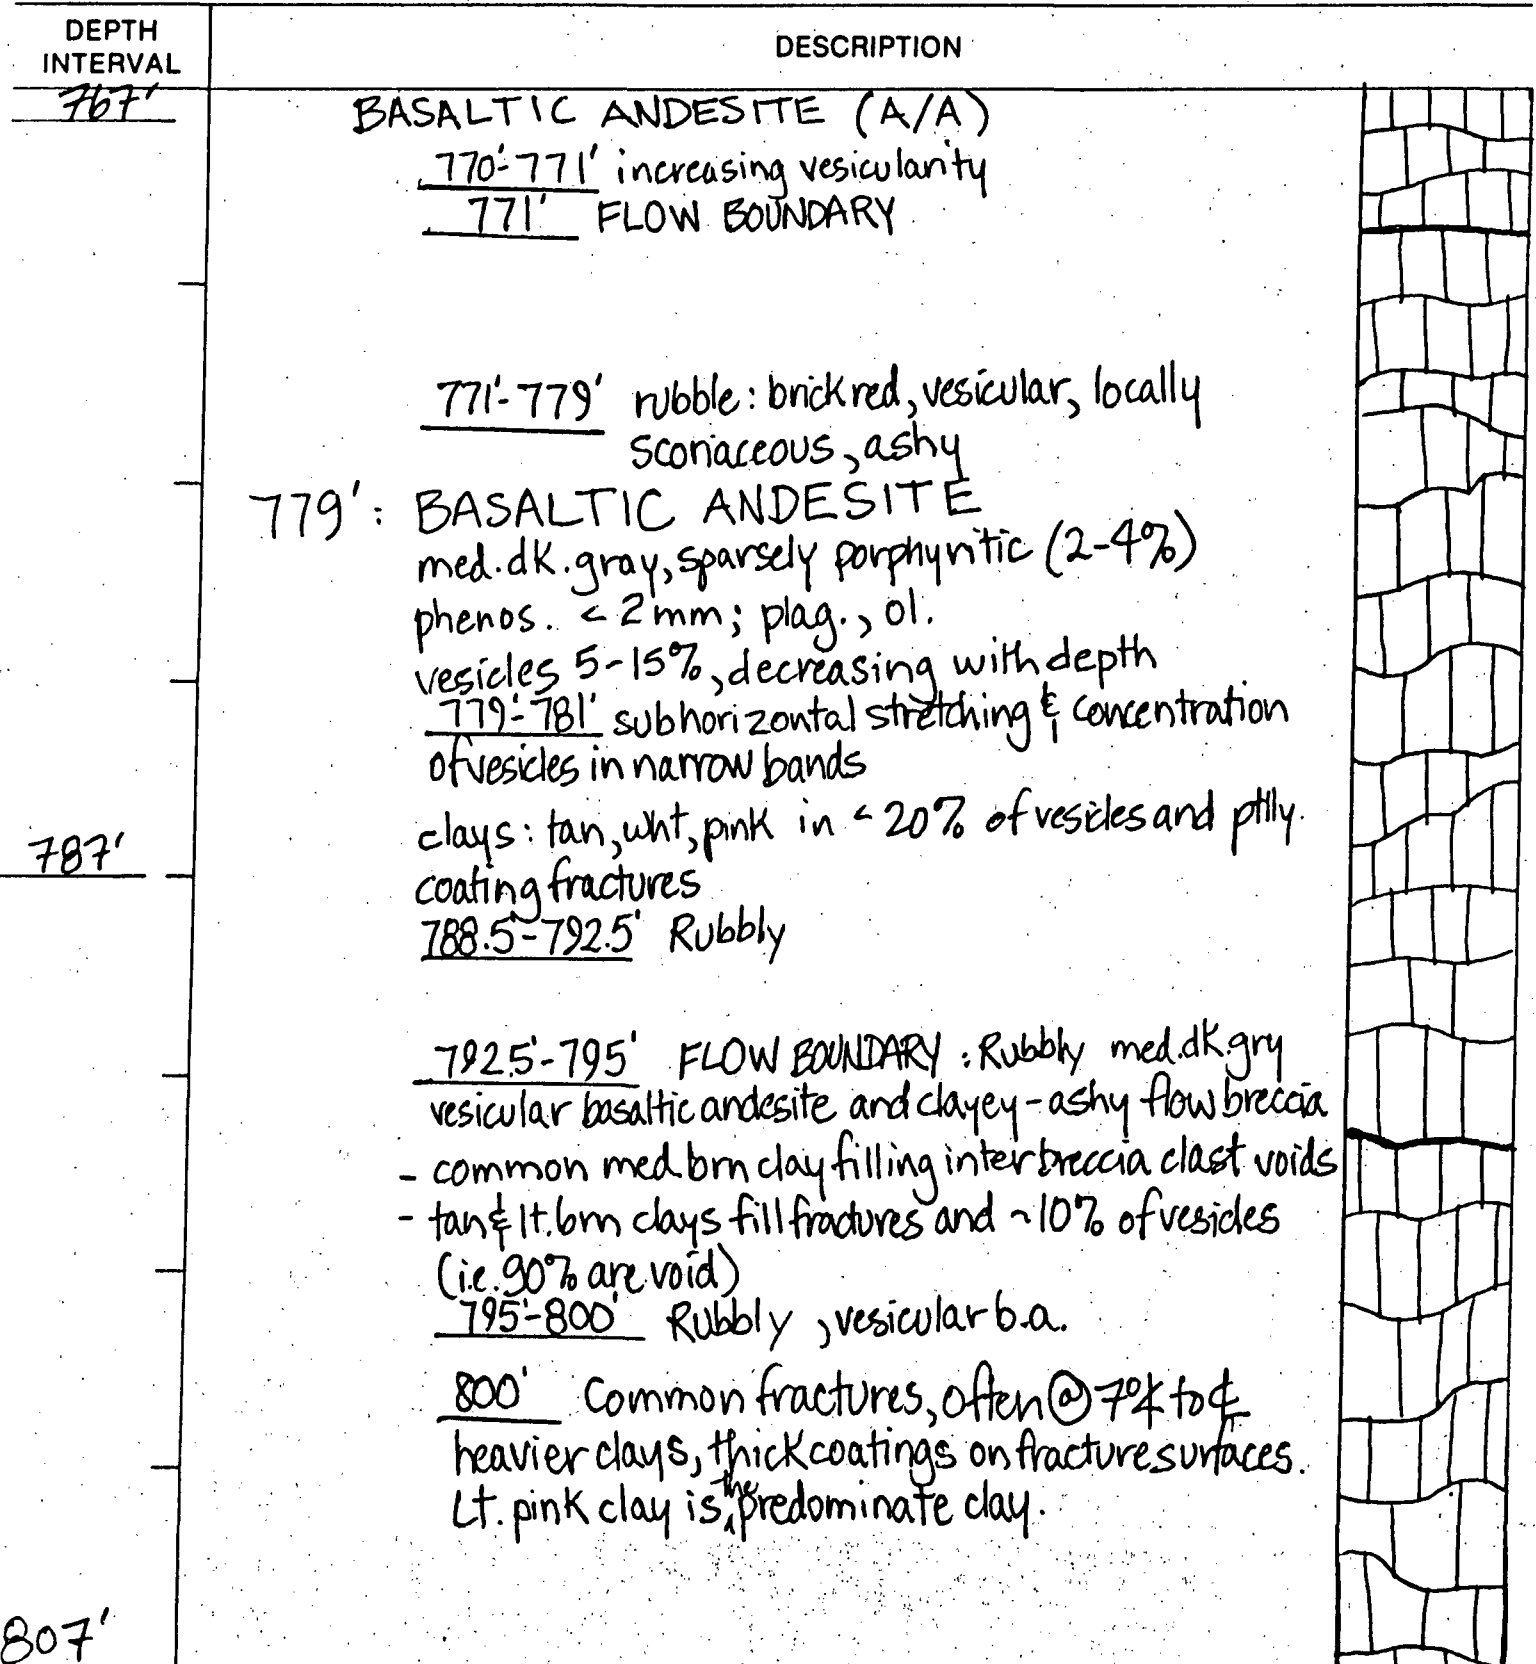 DEPTH
INTERVAL
DESCRIPTION
767'
BASALTIC ANDESITE (A/A)
770'-771' increasing vesicularity
771' FLOW BOUNDARY
771'-779' rubble: brick red, vesicular, locally
scoriaceous, ashy
779': BASALTIC ANDESITE
med. dk. gray, sparsely porphyritic (2-4%)
phenos. < 2mm; plag., ol.
vesicles 5-15%, decreasing with depth
779'-781' subhorizontal stretching & concentration
of vesicles in narrow bands
clays: tan, wht, pink in < 20% of vesicles and ptlly.
787'
coating fractures
788.5'-792.5' Rubbly
792.5'-795' FLOW BOUNDARY: Rubbly med. dk. gry
vesicular basaltic andesite and clayey-ashy flow breccia
- common med. brn clay filling inter breccia clast voids
- tan & lt. brn clays fill fractures and ~10% of vesicles
(i.e. 90% are void)
795'-800' Rubbly, vesicular b.a.
800' Common fractures, often @ 7° ∡ to ℄
heavier clays, thick coatings on fracture surfaces.
Lt. pink clay is the predominate clay.
807'